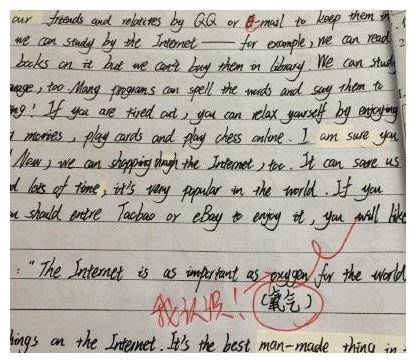 our friends and relatives by QQ or E-mail to keep them in
we can study by the Internet — for example, we can read
books on it but we can't buy them in library. We can stud
uage, too. Many programs can spell the words and say them to
ng! If you are tired out, you can relax yourself by enjoying
movies, play cards and play chess online. I am sure you
Now, we can shopping through the Internet, too. It can save us
d lots of time, it's very popular in the world. If you
u should entre Taobao or eBay to enjoy it, you will like
: "The Internet is as important as oxygen for the world
我认识！(氧气)
hings on the Internet. It's the best man-made thing in